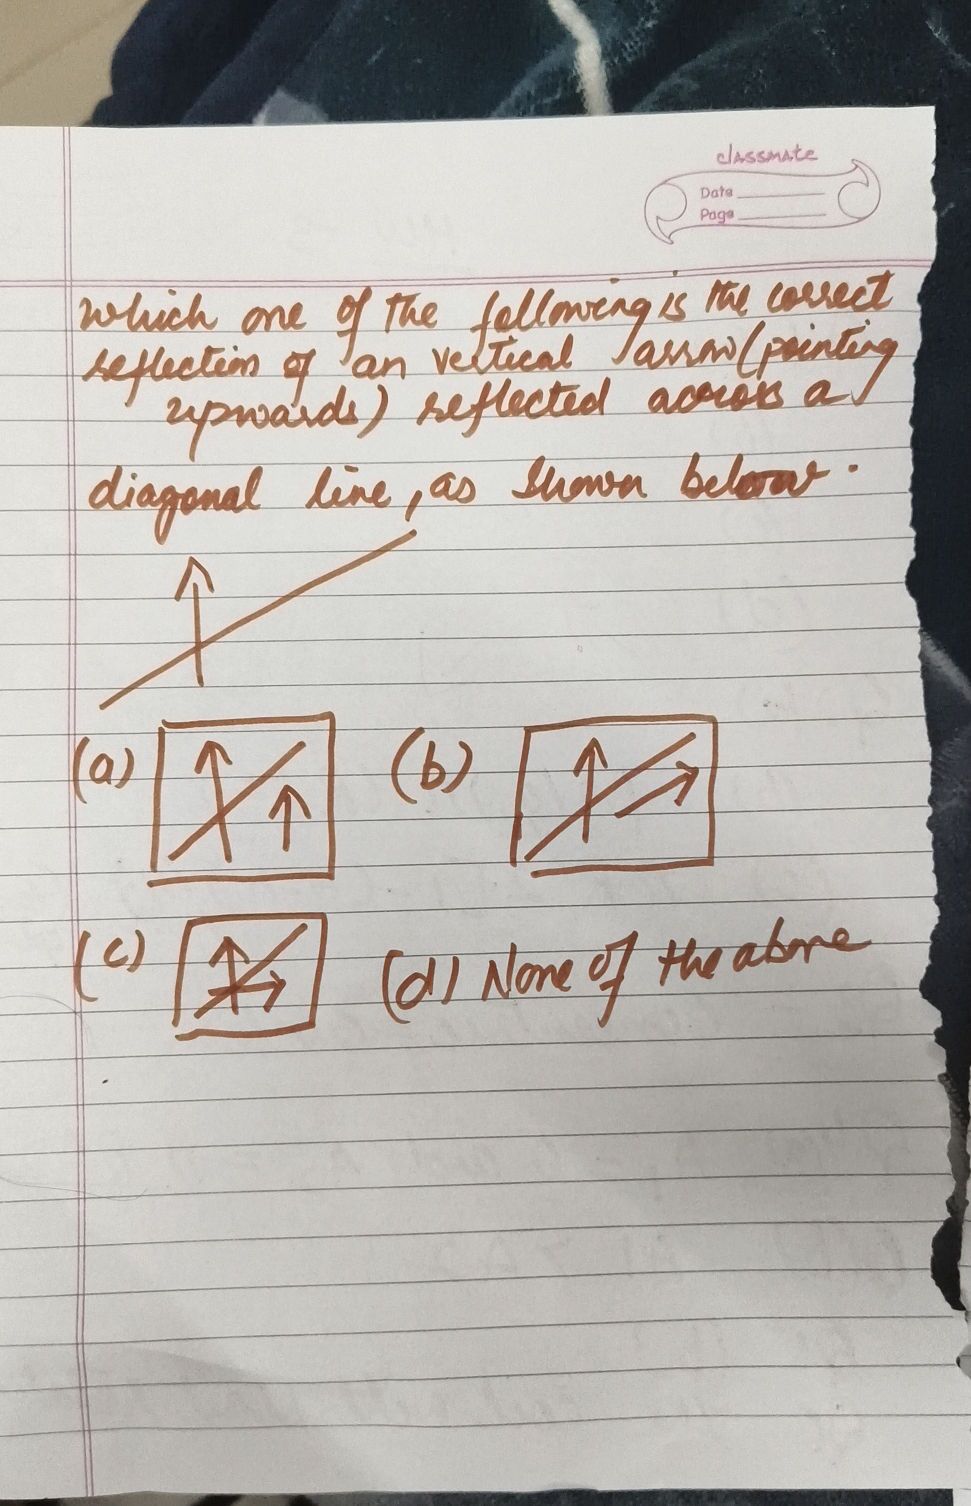 classmate
Date
Page
Which one of the following is the correct
reflection of an vertical arrow (pointing
upwards) reflected across a
diagonal line, as shown below.
(a) (b)
(c) (d) None of the above